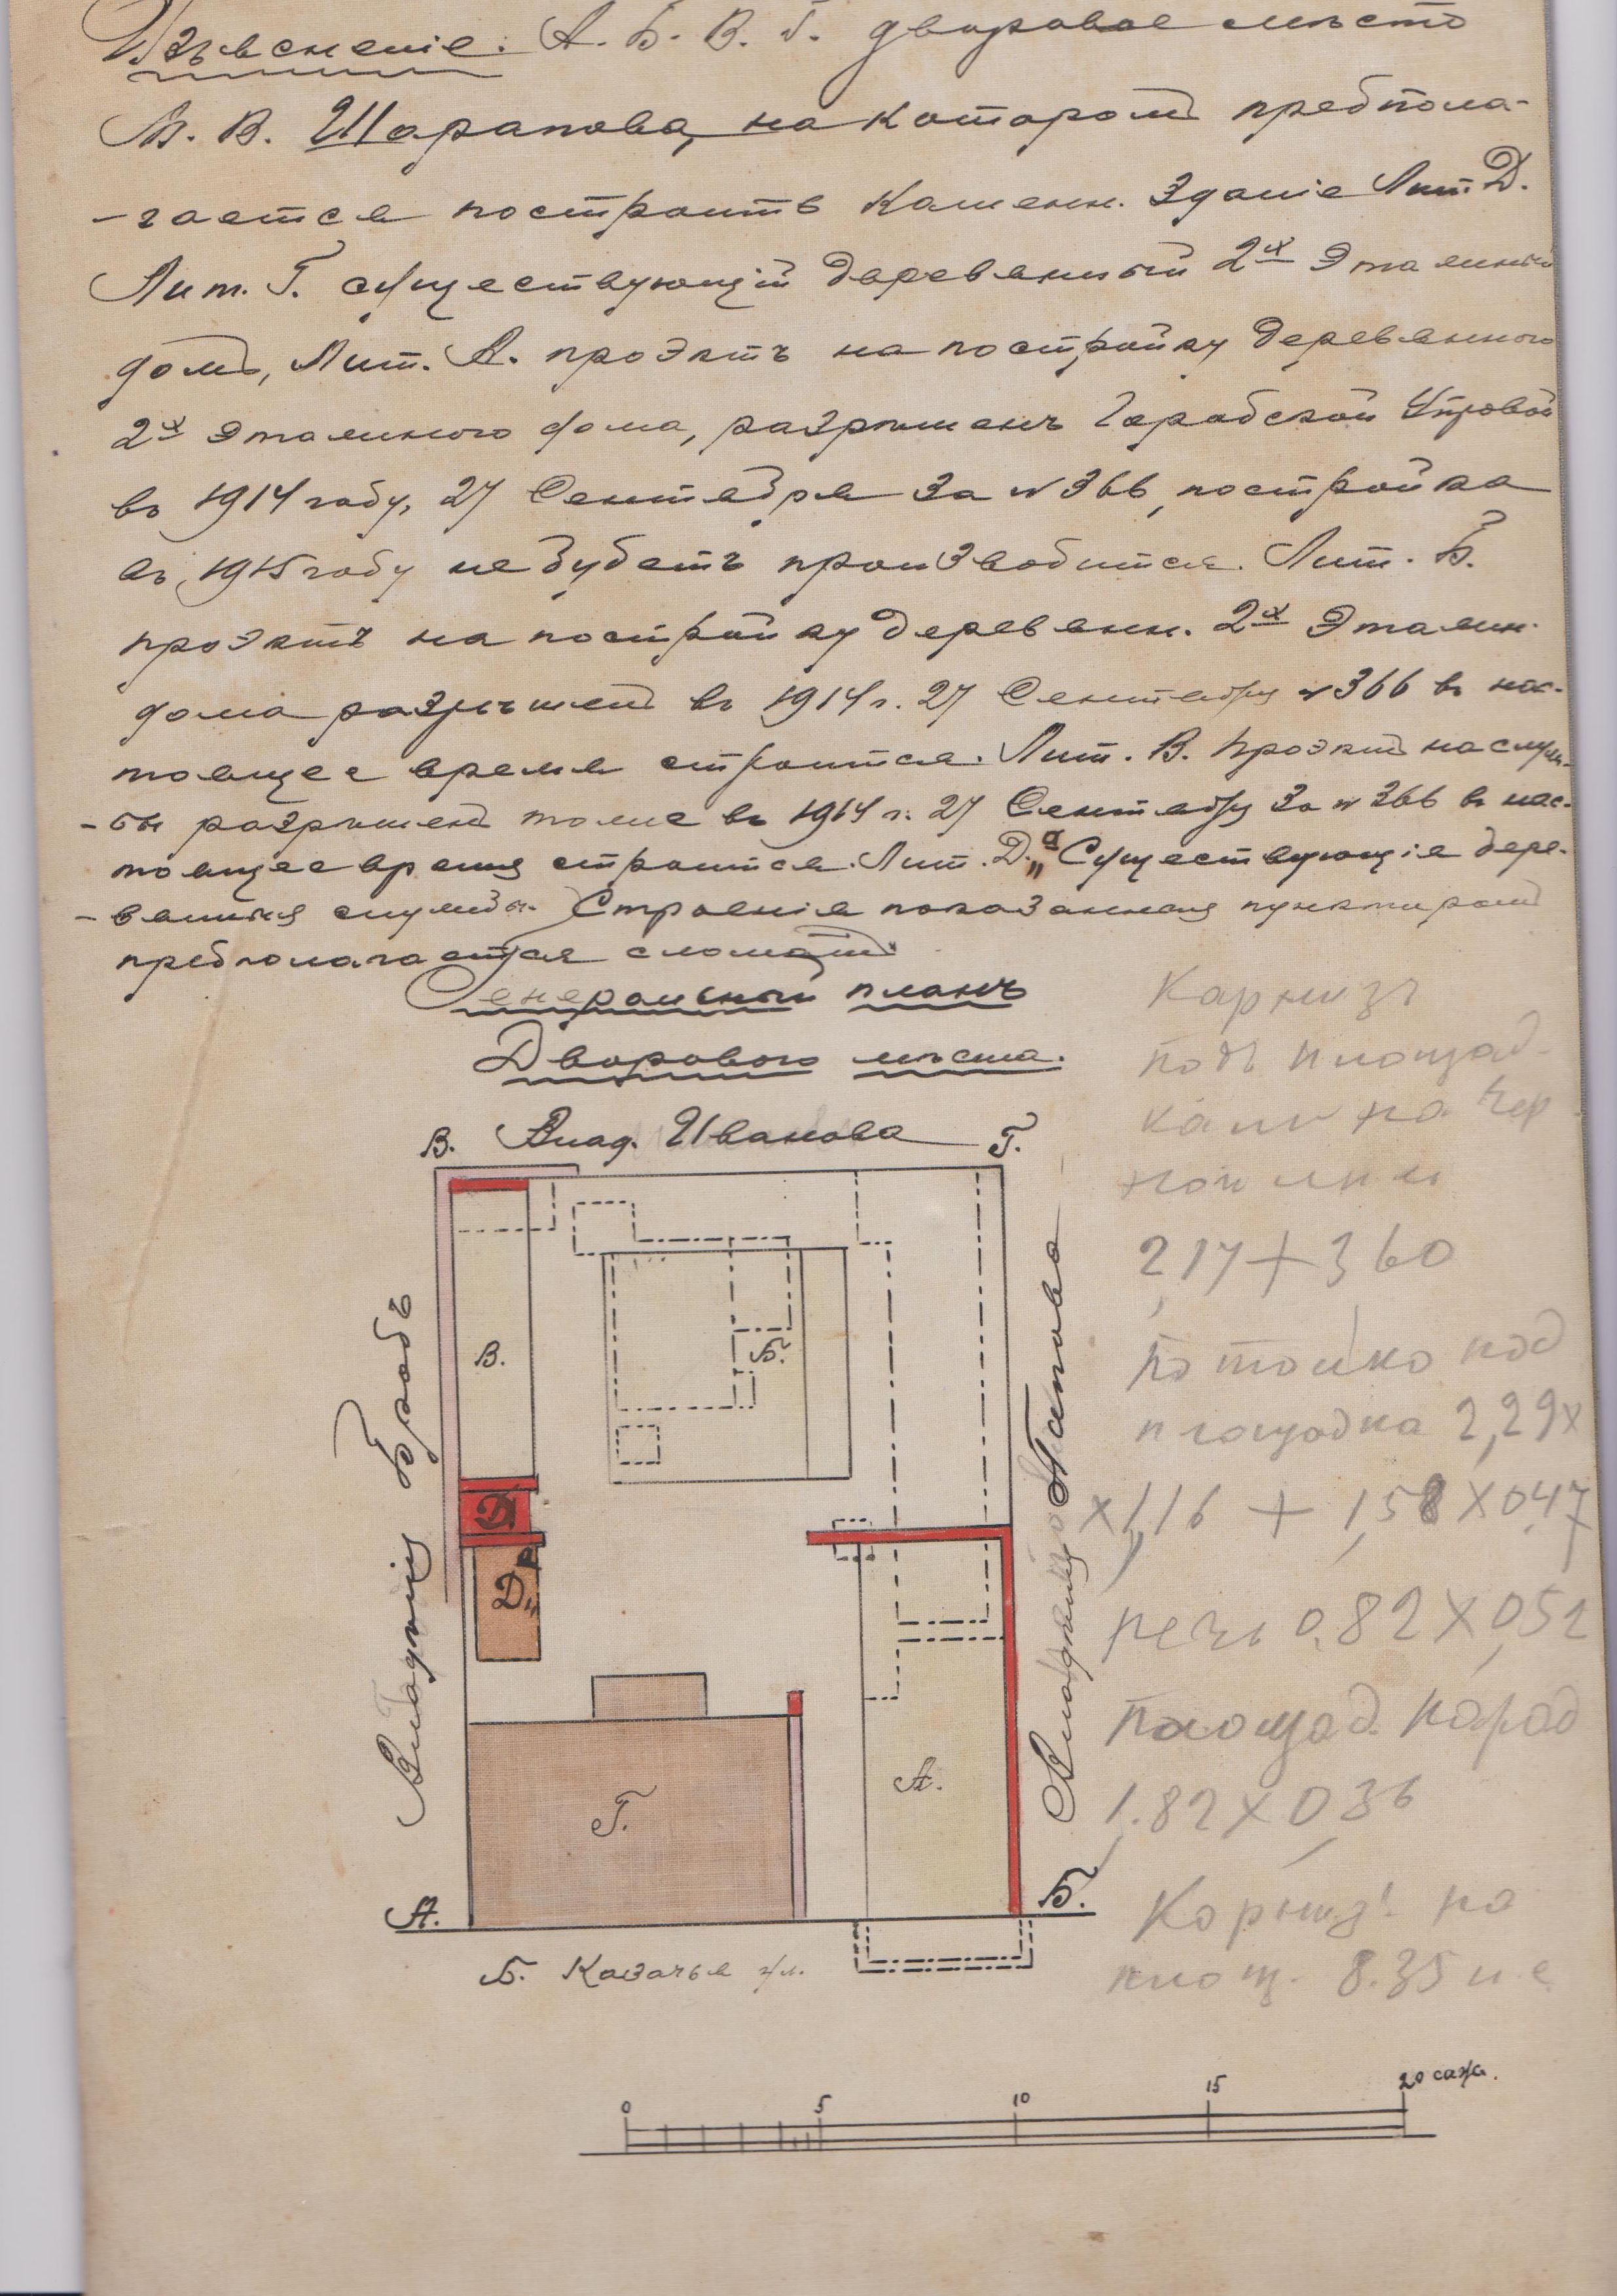 Изъясненіе: А. Б. В. Г. дворовое мѣсто
В. Шарапова, на которомъ предпола-
-гается построить Каменн. Зданіе Лит. Д.
Лит. Г. существующій деревянный 2х Этажный
домъ, Лит. А. проэктъ на постройку деревяннаго
2х Этажнаго дома, разрѣшенъ Городской Управой
въ 1914 году, 27 Сентября За № 366, постройка
въ 1915 году не будетъ производится. Лит. Б.
проэктъ на постройку деревянн. 2х Этажн.
дома разрѣшенъ въ 1914 г. 27 Сентября № 366 въ нас-
тоящее время строится. Лит. В. Проэктъ на служ-
-бы разрѣшенъ тоже въ 1914 г. 27 Сентября За № 366 въ нас-
тоящее время строится. Лит. Д"а Существующія дере-
-вянныя службы. Строенія показанныя пунктиромъ
предполагается сломать
Генеральный планъ
Дворового мѣста.
В. Влад. Иванова Г.
Владѣніе
В.
Б.
Д
Д"а
Г.
А.
А.
Б.
Б. Казачья ул.
0 5 10 15 20 саж.
Карнизъ
подъ площад-
ками на чер
ной лѣст
2,17+3 60
площадка 2,29х
х1,16 + 1,58 х 0,47
печь 0,82 х 0,52
площад. парад
1.82 х 0 36
Карнизъ на
площ. 8.35